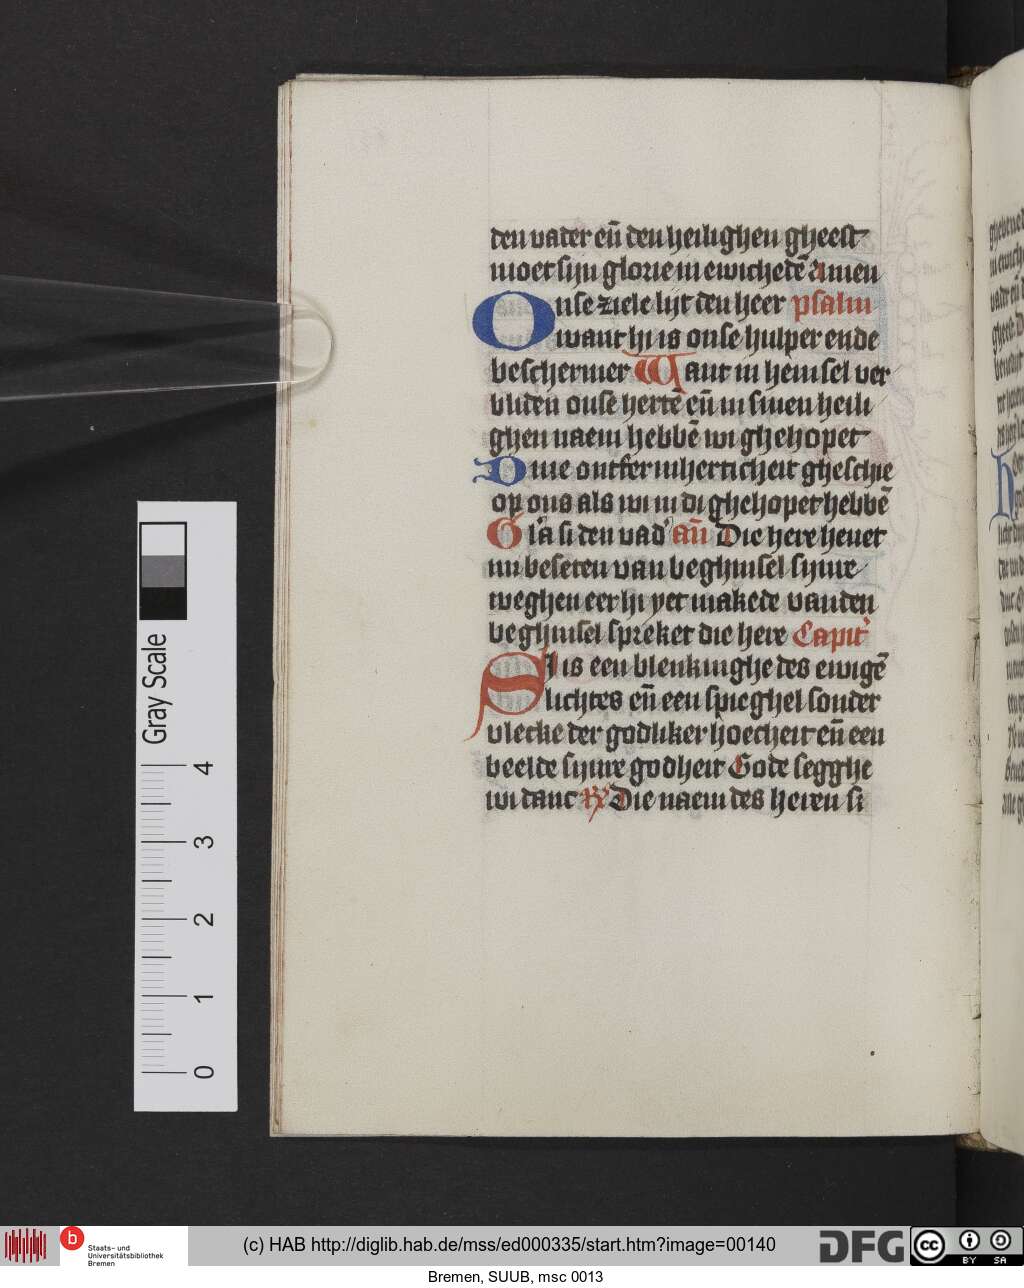 den vader eñ den heilighen gheest
moet sijn glorie in ewichedē Amen
Onse ziele lijt den heer psalm
want hi is onse hulper ende
beschermer Want in hem sel ver
bliden onse hertē eñ in sinen heili
ghen naem hebbē wi ghehopet
Dine ontfermherticheit gheschie
op ons als wi in di ghehopet hebbē
Gl'a si den vad' añ Die here heuet
mi beseten van beghinsel sijnre
weghen eer hi yet makede vanden
beghinsel spreket die here Capit'
Si is een blenkinghe des ewigē
lichtes eñ een spieghel sonder
vlecke der godliker hoecheit eñ een
beelde sijnre godheit Gode segghe
wi danc R Die naem des heren si
Gray Scale
4
3
2
1
0
b
Staats- und
Universitätsbibliothek
Bremen
(c) HAB http://diglib.hab.de/mss/ed000335/start.htm?image=00140
DFG
cc
BY SA
Bremen, SUUB, msc 0013